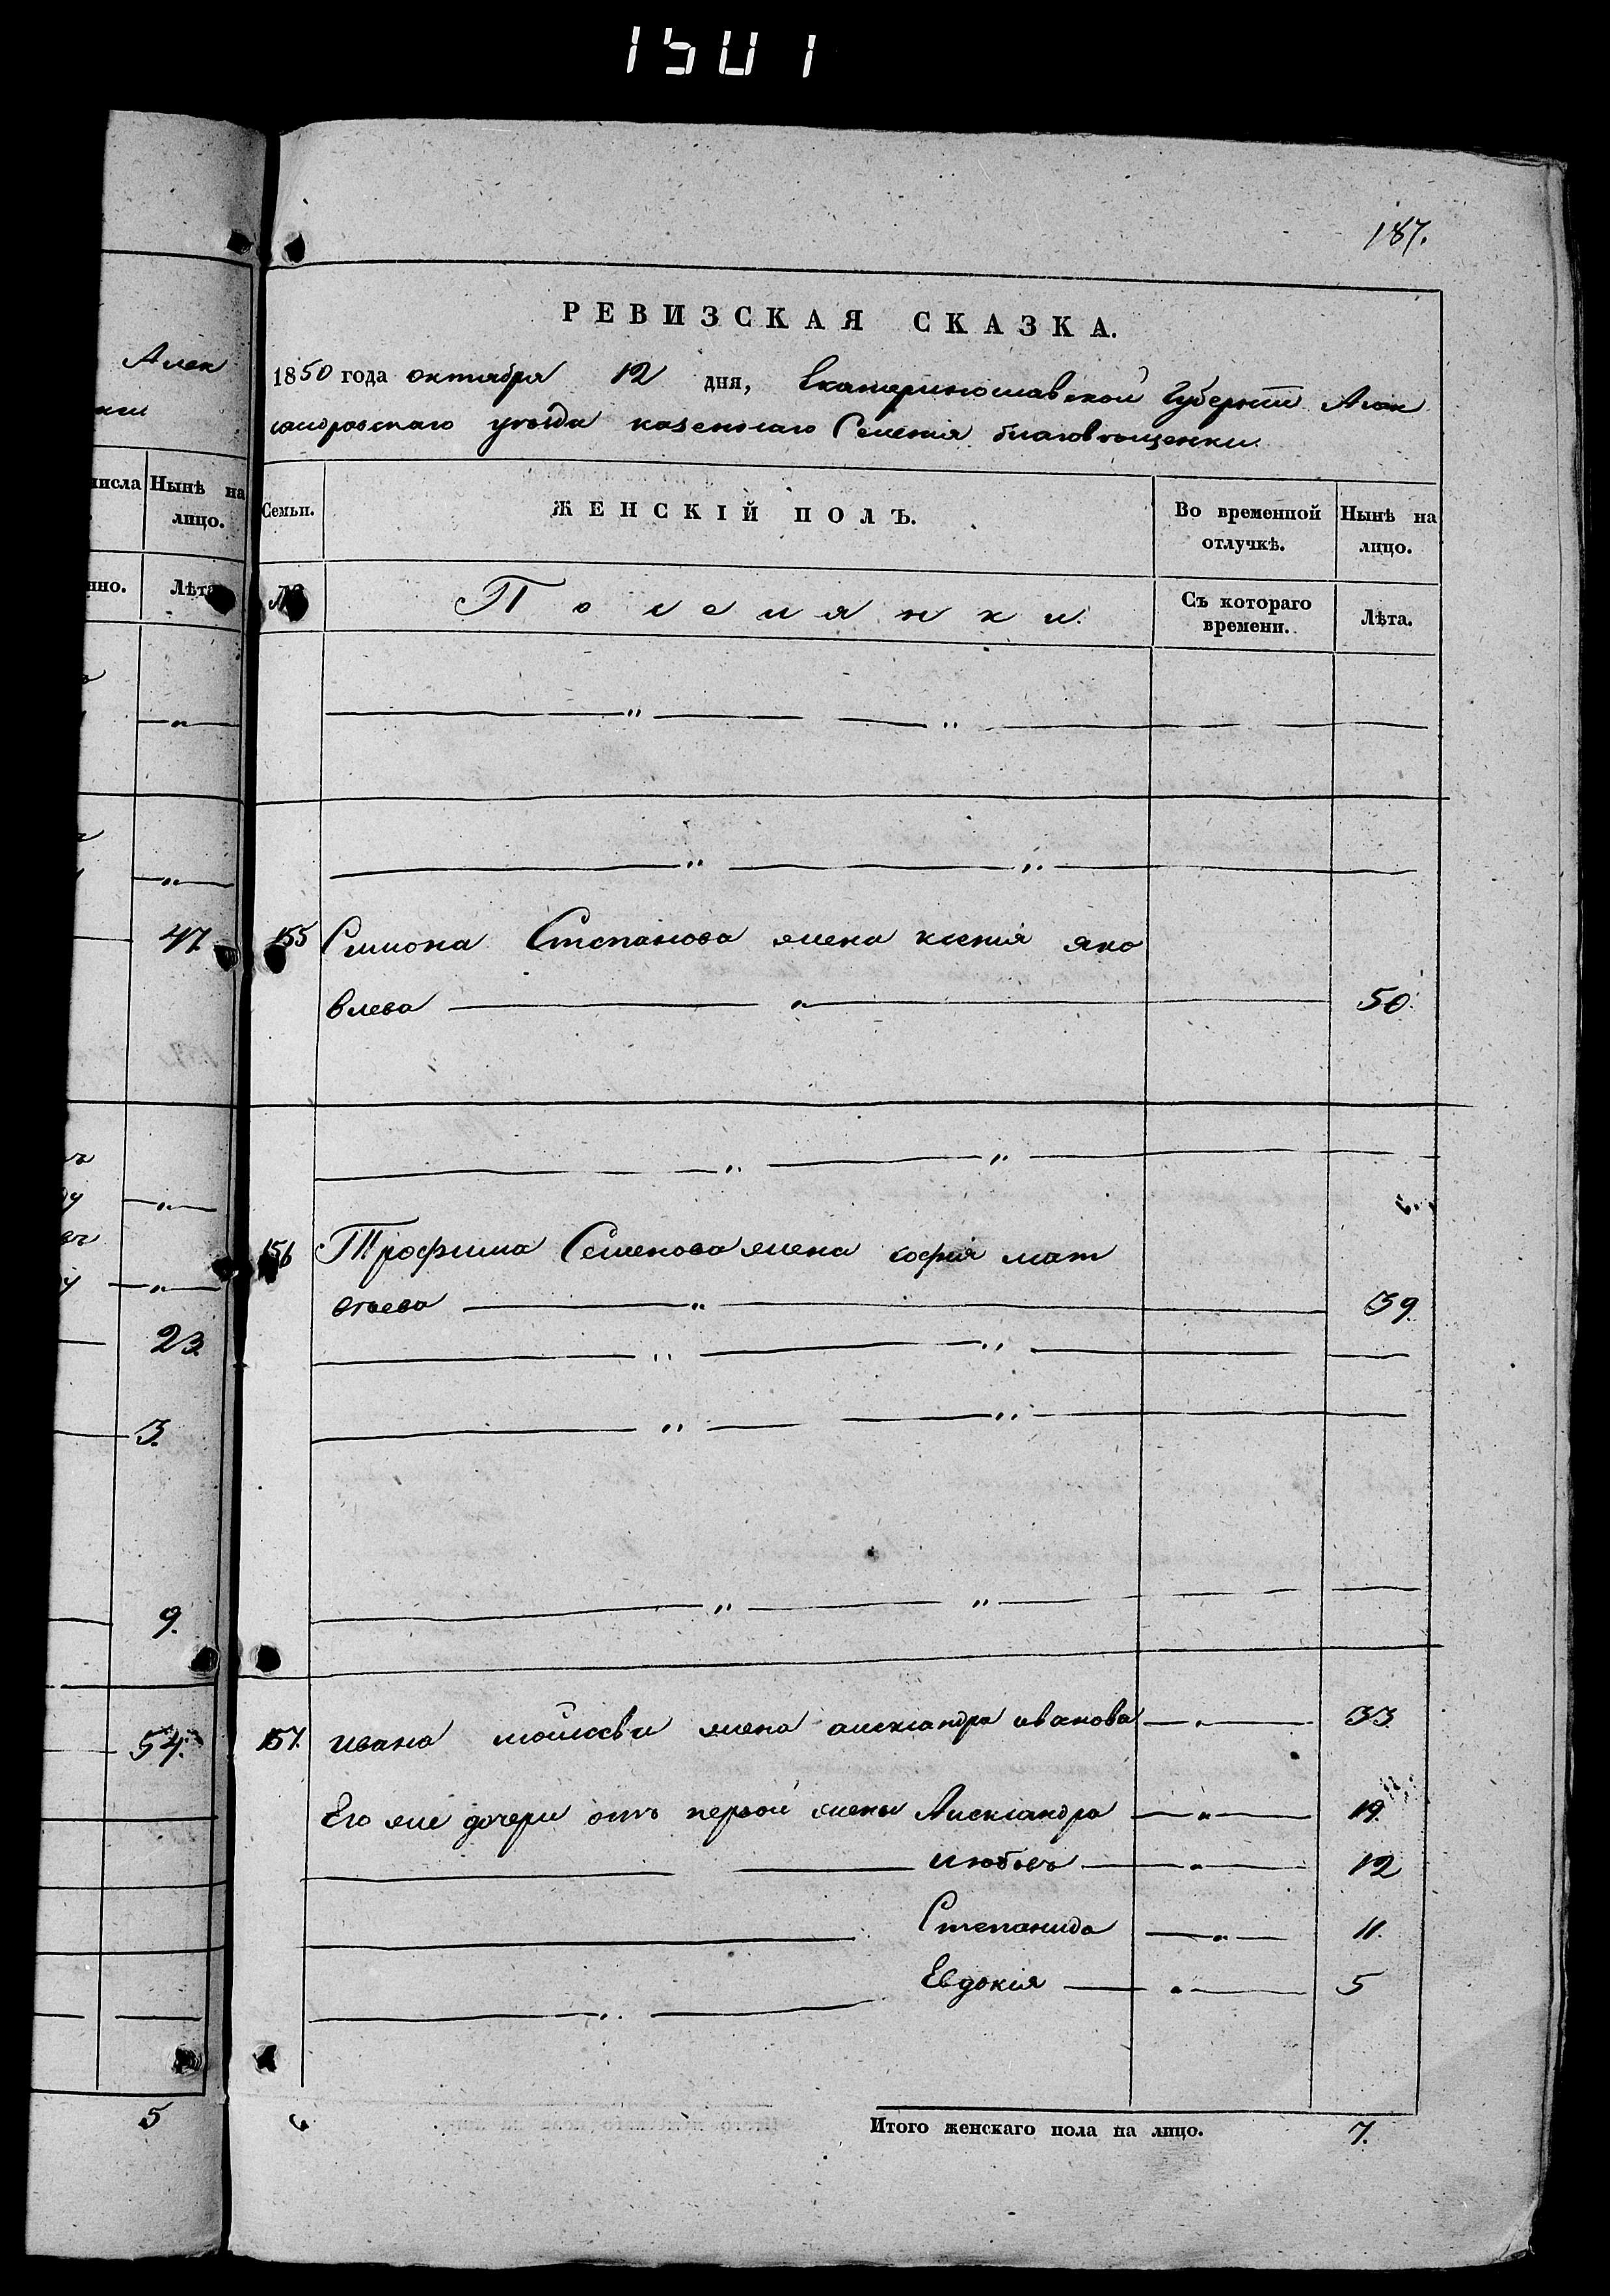 1501
187.
РЕВИЗСКАЯ СКАЗКА.
Алек
1850 года октября 12 дня, Екатеринославской Губернии Алек
сандровскаго уѣзда казеннаго Селенія благовѣщенки.
числа Нынѣ на лицо.
Семьи. ЖЕНСКІЙ ПОЛЪ. Во временной отлучкѣ. Нынѣ на лицо.
нно. Лѣта
№ Поселянки. Съ котораго времени. Лѣта.
47. 155 Симона Степанова жена ксенія яко
влева 50.
156 Трофима Семенова жена софія мат
вѣева 39.
23.
3.
9.
54. 157. ивана моисеева жена александра иванова 33.
Его же дочери отъ первой жены Александра 19.
любовь 12
Степанида 11.
Евдокія 5
5 Итого женскаго пола на лицо. 7.